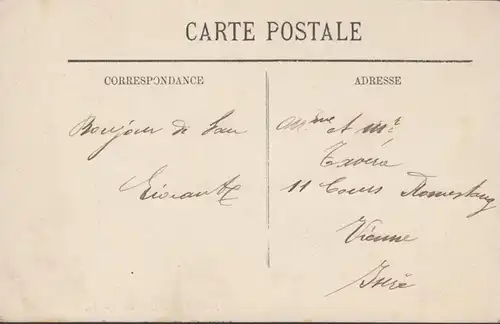 CARTE POSTALE
CORRESPONDANCE
Bonjour de San
ADRESSE
Mme et Mr
Tavera
11 Cours Romestang
Vienne
Isère